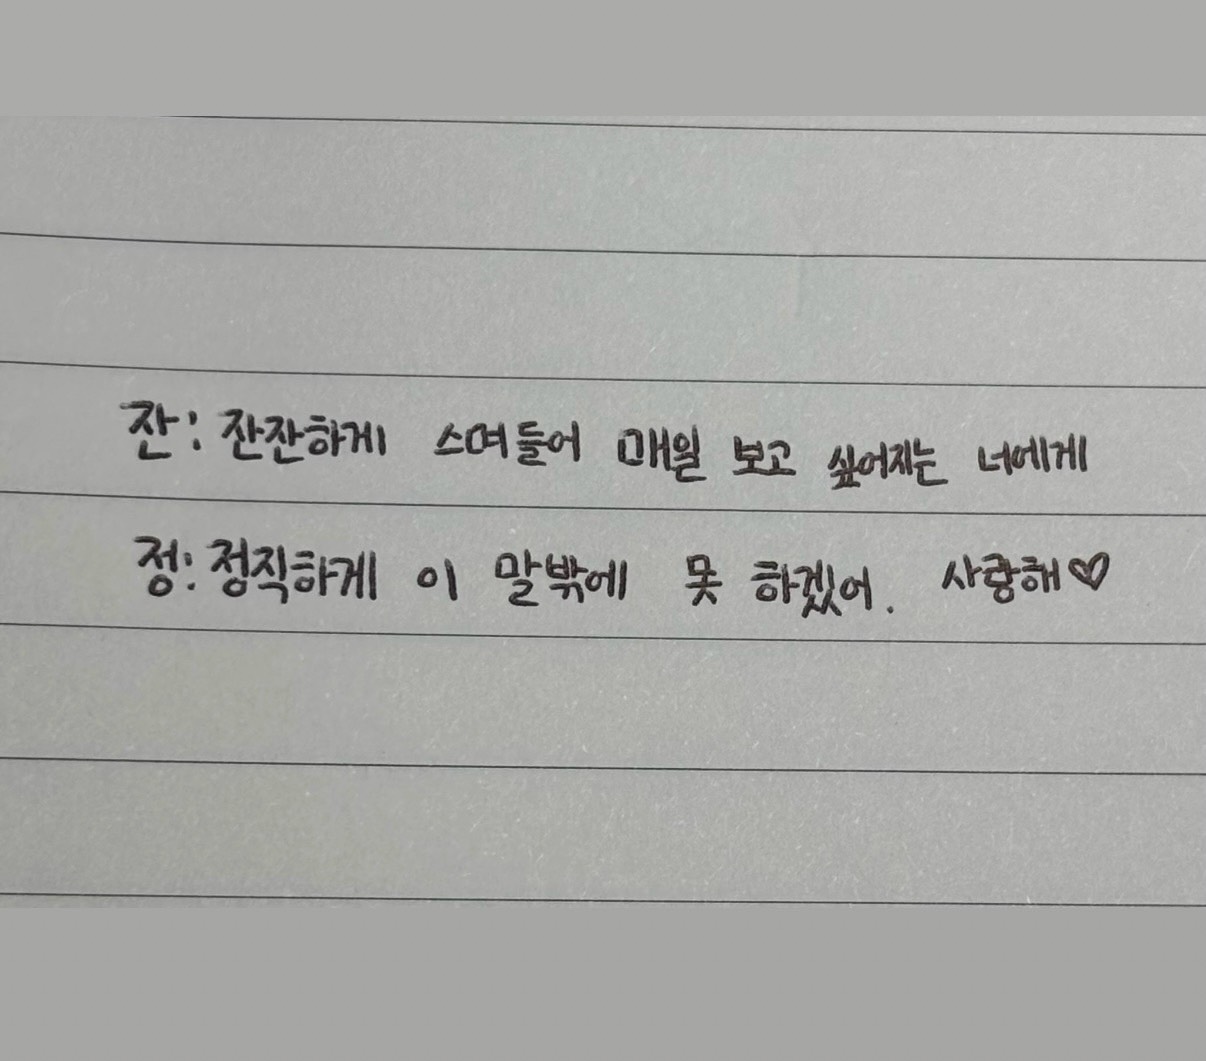 잔: 잔잔하게 스며들어 매일 보고 싶어지는 너에게
정: 정직하게 이 말밖에 못 하겠어. 사랑해♡